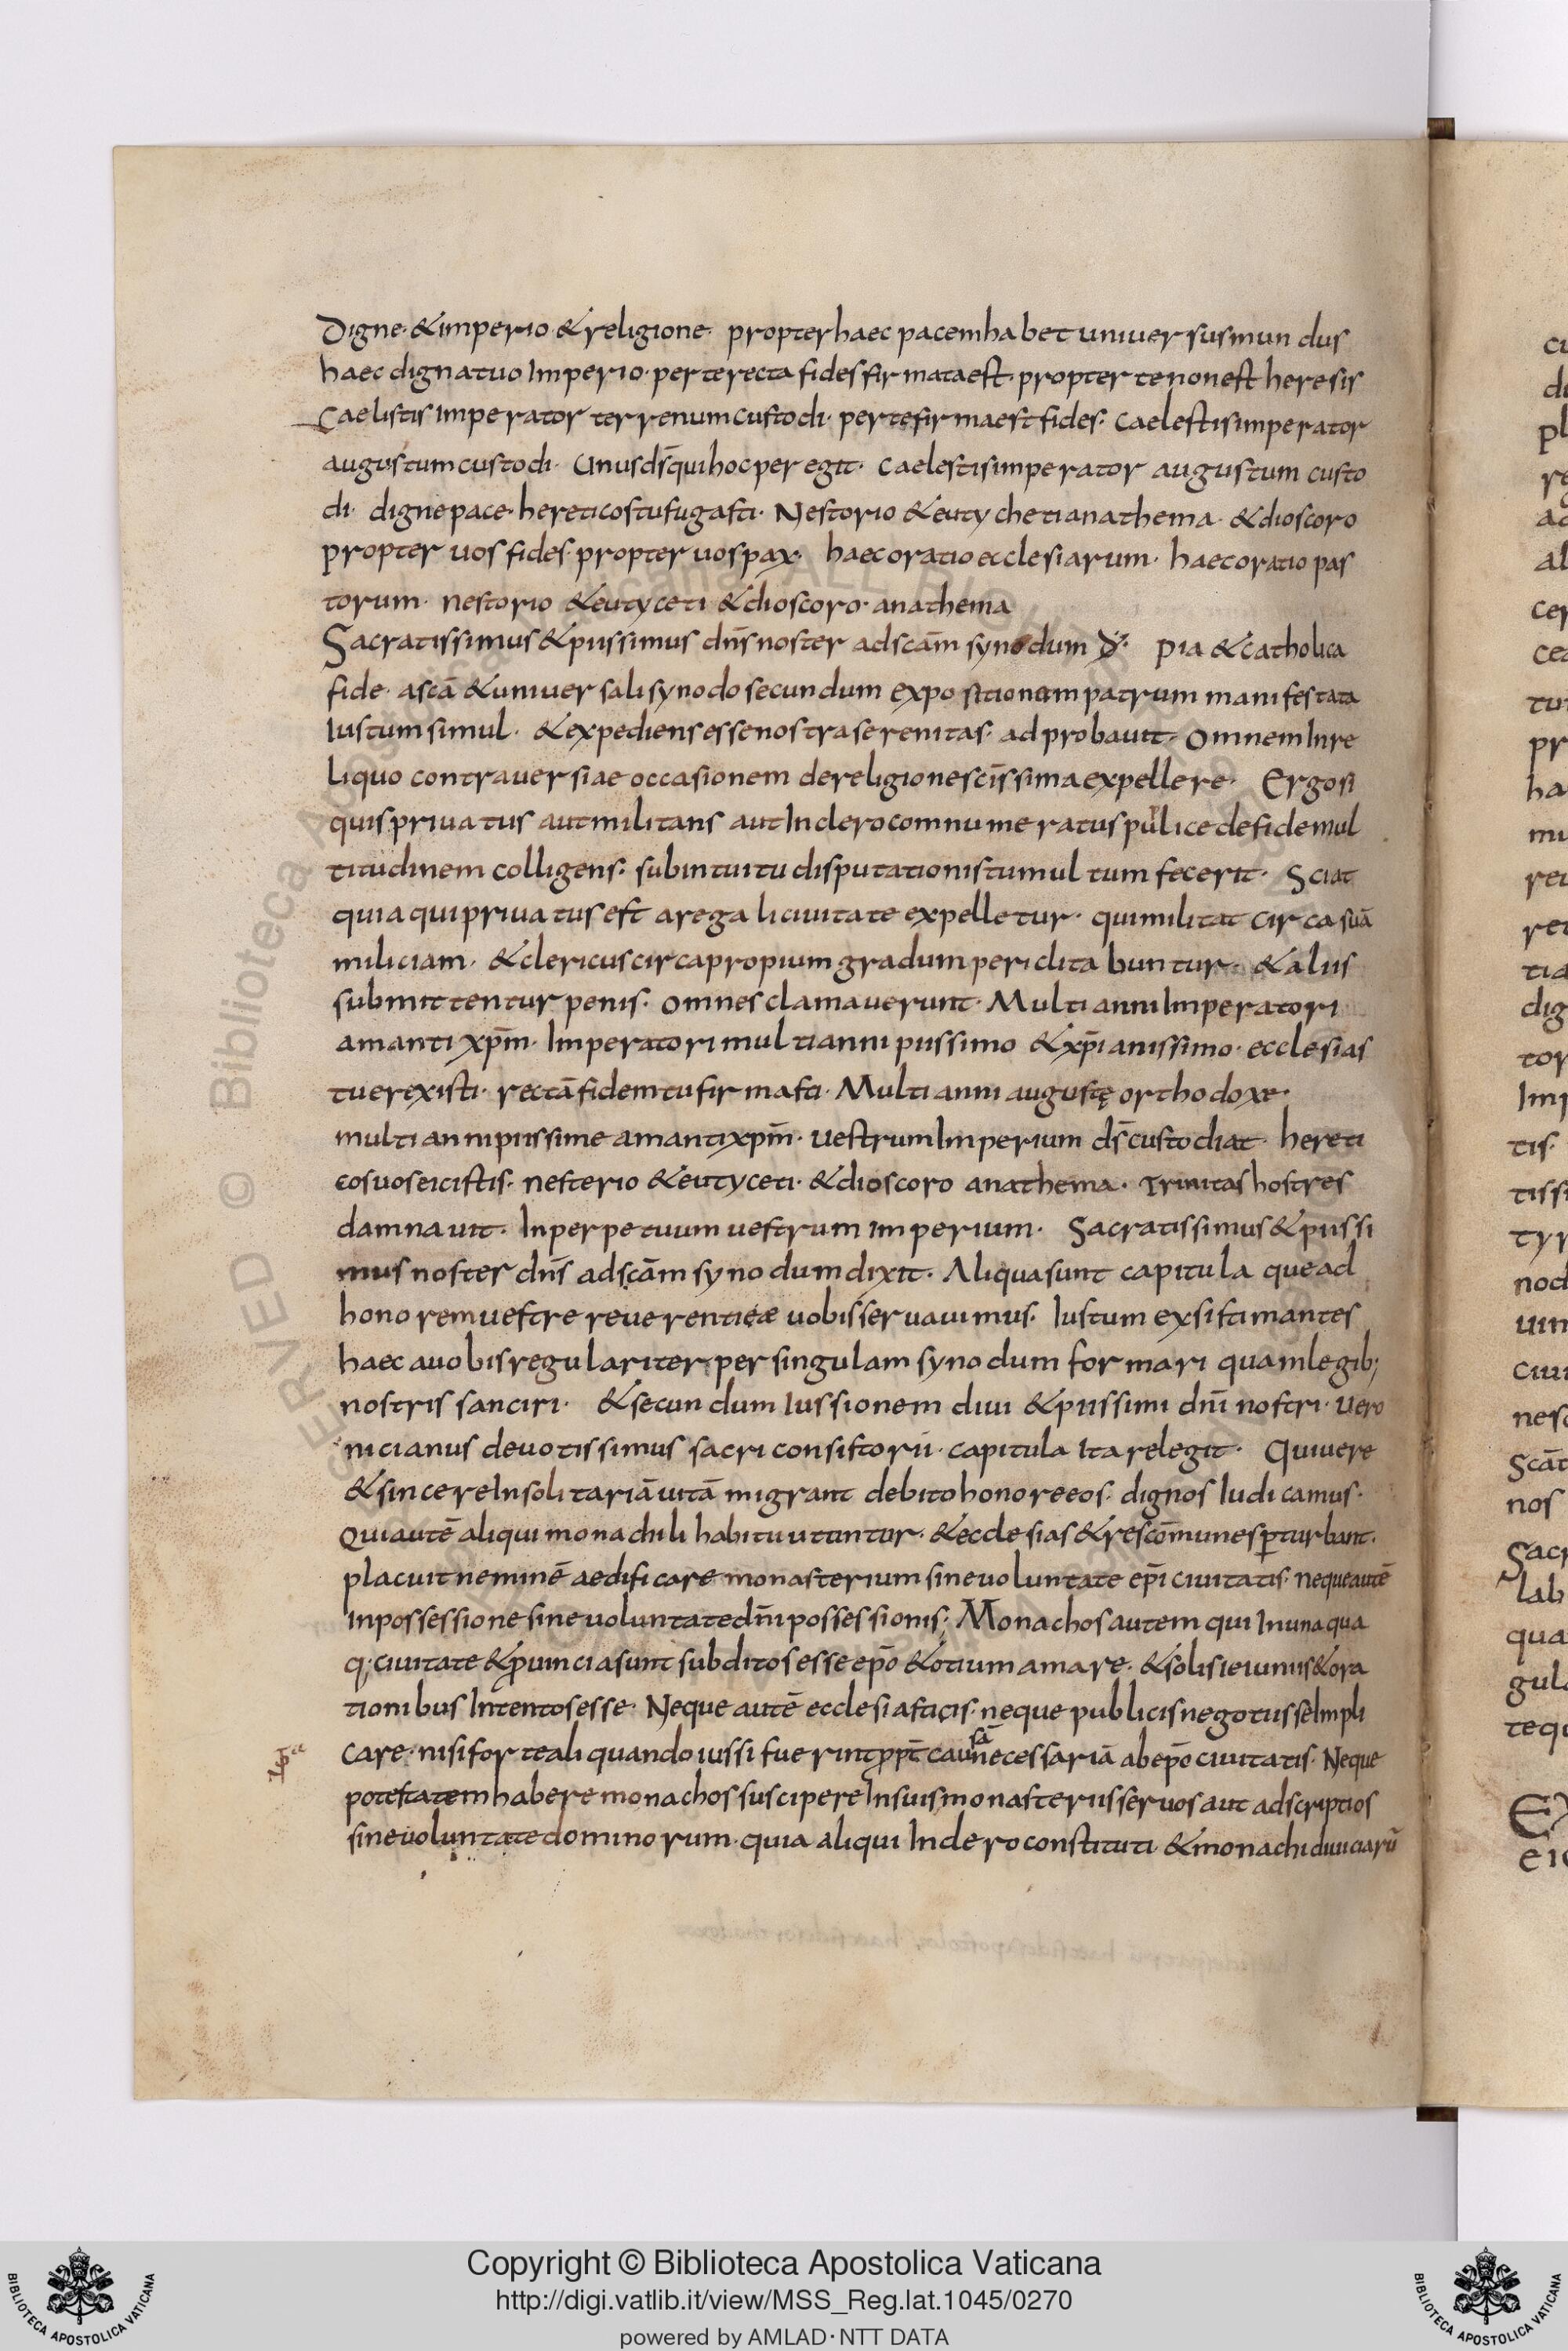 Digne· & imperio & religione· propter haec pacem habet uniuersus mundus
haec digna tuo Imperio· per te recta fides firmata est· propter te non est heresis
Caelistis Imperator terrenum custodi· per te firma est fides· Caelestis imperator
augustum custodi· Unus d̄s qui hoc peregit· Caelestis imperator augustum custo
di· digne pace· hereticos tu fugasti· Nestorio & eutycheti anathema· & dioscoro
propter uos fides· propter uos pax· haec oratio ecclesiarum· haec oratio pas
torum· nestorio & eutyceti & dioscoro· anathema
Sacratissimus & piissimus dn̄s noster ad scām synodum Pia & catholica
fide· a scā & uniuersali synodo secundum expositionem patrum manifestata
Iustum simul· & expediens esse nostra serenitas· adprobauit· Omnem In re
liquo contrauersiae occasionem de religione sc̄issima expellere· Ergo si
quis priuatus aut militans aut In clero connumeratus pulice de fide mul
titudinem colligens· sub intuitu disputationis tumultum fecerit· Sciat
quia qui priuatus est a regali ciuitate expelletur· qui militat circa suā
miliciam· & clericus circa propium gradum periclitabuntur· & aliis
submittentur penis· Omnes clamauerunt· Multi anni Imperatori
amanti xp̄m· Imperatori multi anni piissimo & xp̄ianissimo· ecclesias
tu erexisti· rectā fidem tu firmasti· Multi anni augustę orthodoxe·
multi anni piissime amanti xpm̄· uestrum Imperium d̄s custodiat· hereti
cos uos eicistis· nesterio & eutyceti· & dioscoro anathema· Trinitas hos tres
damnauit· In perpetuum uestrum imperium· Sacratissimus & piissi
mus noster dn̄s ad scām synodum dixit· Aliqua sunt capitula que ad
honorem uestre reuerentiæ uobis seruauimus· Iustum exsistimantes
haec a uobis regulariter per singulam synodum formari quam legib;
nostris sanciri· & secundum Iussionem diui & piissimi dn̄i nostri· Uero
nicianus deuotissimus sacri consistorii· capitula Ita relegit· Qui uere
& sincere In solitariā uitā migrant debito honore eos· dignos Iudicamus·
Qui autē aliqui monachili habitu utuntur· & ecclesias & res cōmunes p̱turbant·
placuit neminē aedificare monasterium sine uoluntate ep̄i ciuitatis· neque autē
In possessione sine uoluntate dn̄i possessionis· Monachos autem qui In una qua
q; ciuitate & puincia sunt subditos esse ep̄o & otium amare· & solis ieiuniis & ora
tionibus Intentos esse· Neque autē ecclesiasticis· neque publicis negotiis se Impli
care· nisi forte aliquando iussi fuerint ppt̄ causā necessariā ab ep̄o ciuitatis· Neque
potestatem habere monachos suscipere In suis monasteriis seruos aut adscriptios
sine uoluntate dominorum· quia aliqui In clero constituti & monachi diuiciarū
Copyright © Biblioteca Apostolica Vaticana
http://digi.vatlib.it/view/MSS_Reg.lat.1045/0270
powered by AMLAD·NTT DATA
BIBLIOTECA APOSTOLICA VATICANA
BIBLIOTECA APOSTOLICA VATICANA